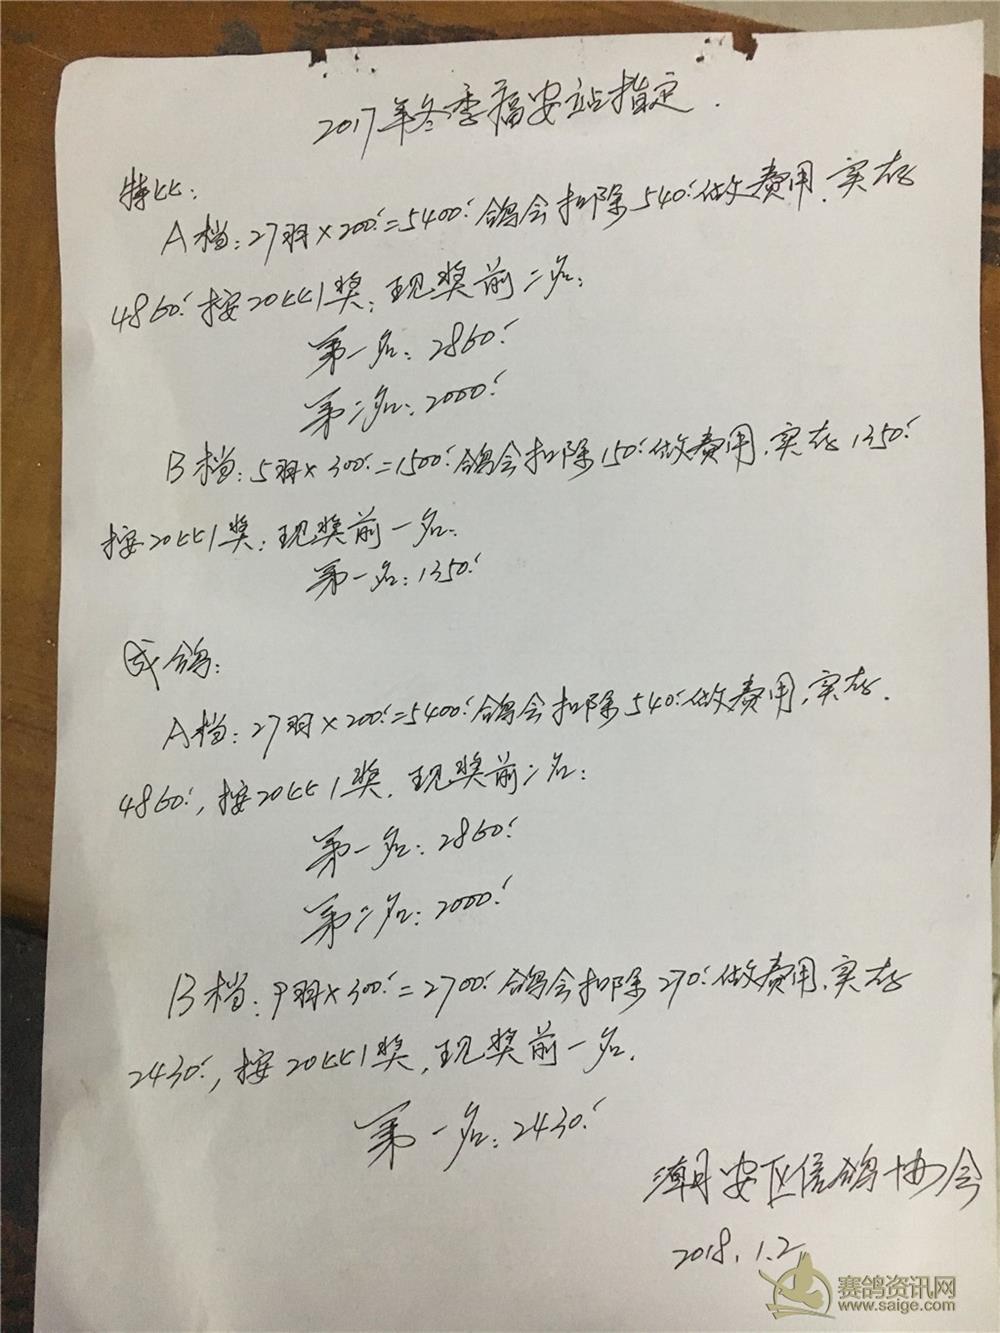 2017年冬季福安站指定.
特比:
A档:27羽×200.=5400.鸽会扣除540.做费用.实存
4860.按20比1奖;现奖前二名:
第一名:2860.
第二名:2000.
B档:5羽×300.=1500.鸽会扣除150.做费用.实存1350.
按20比1奖;现奖前一名.
第一名:1350.
成鸽:
A档:27羽×200.=5400.鸽会扣除540.做费用.实存.
4860.,按20比1奖.现奖前二名:
第一名:2860.
第二名:2000.
B档:9羽×300.=2700.鸽会扣除270.做费用.实存
2430.,按20比1奖,现奖前一名.
第一名:2430.
潮安区信鸽协会
2018.1.2
赛鸽资讯网
www.saige.com